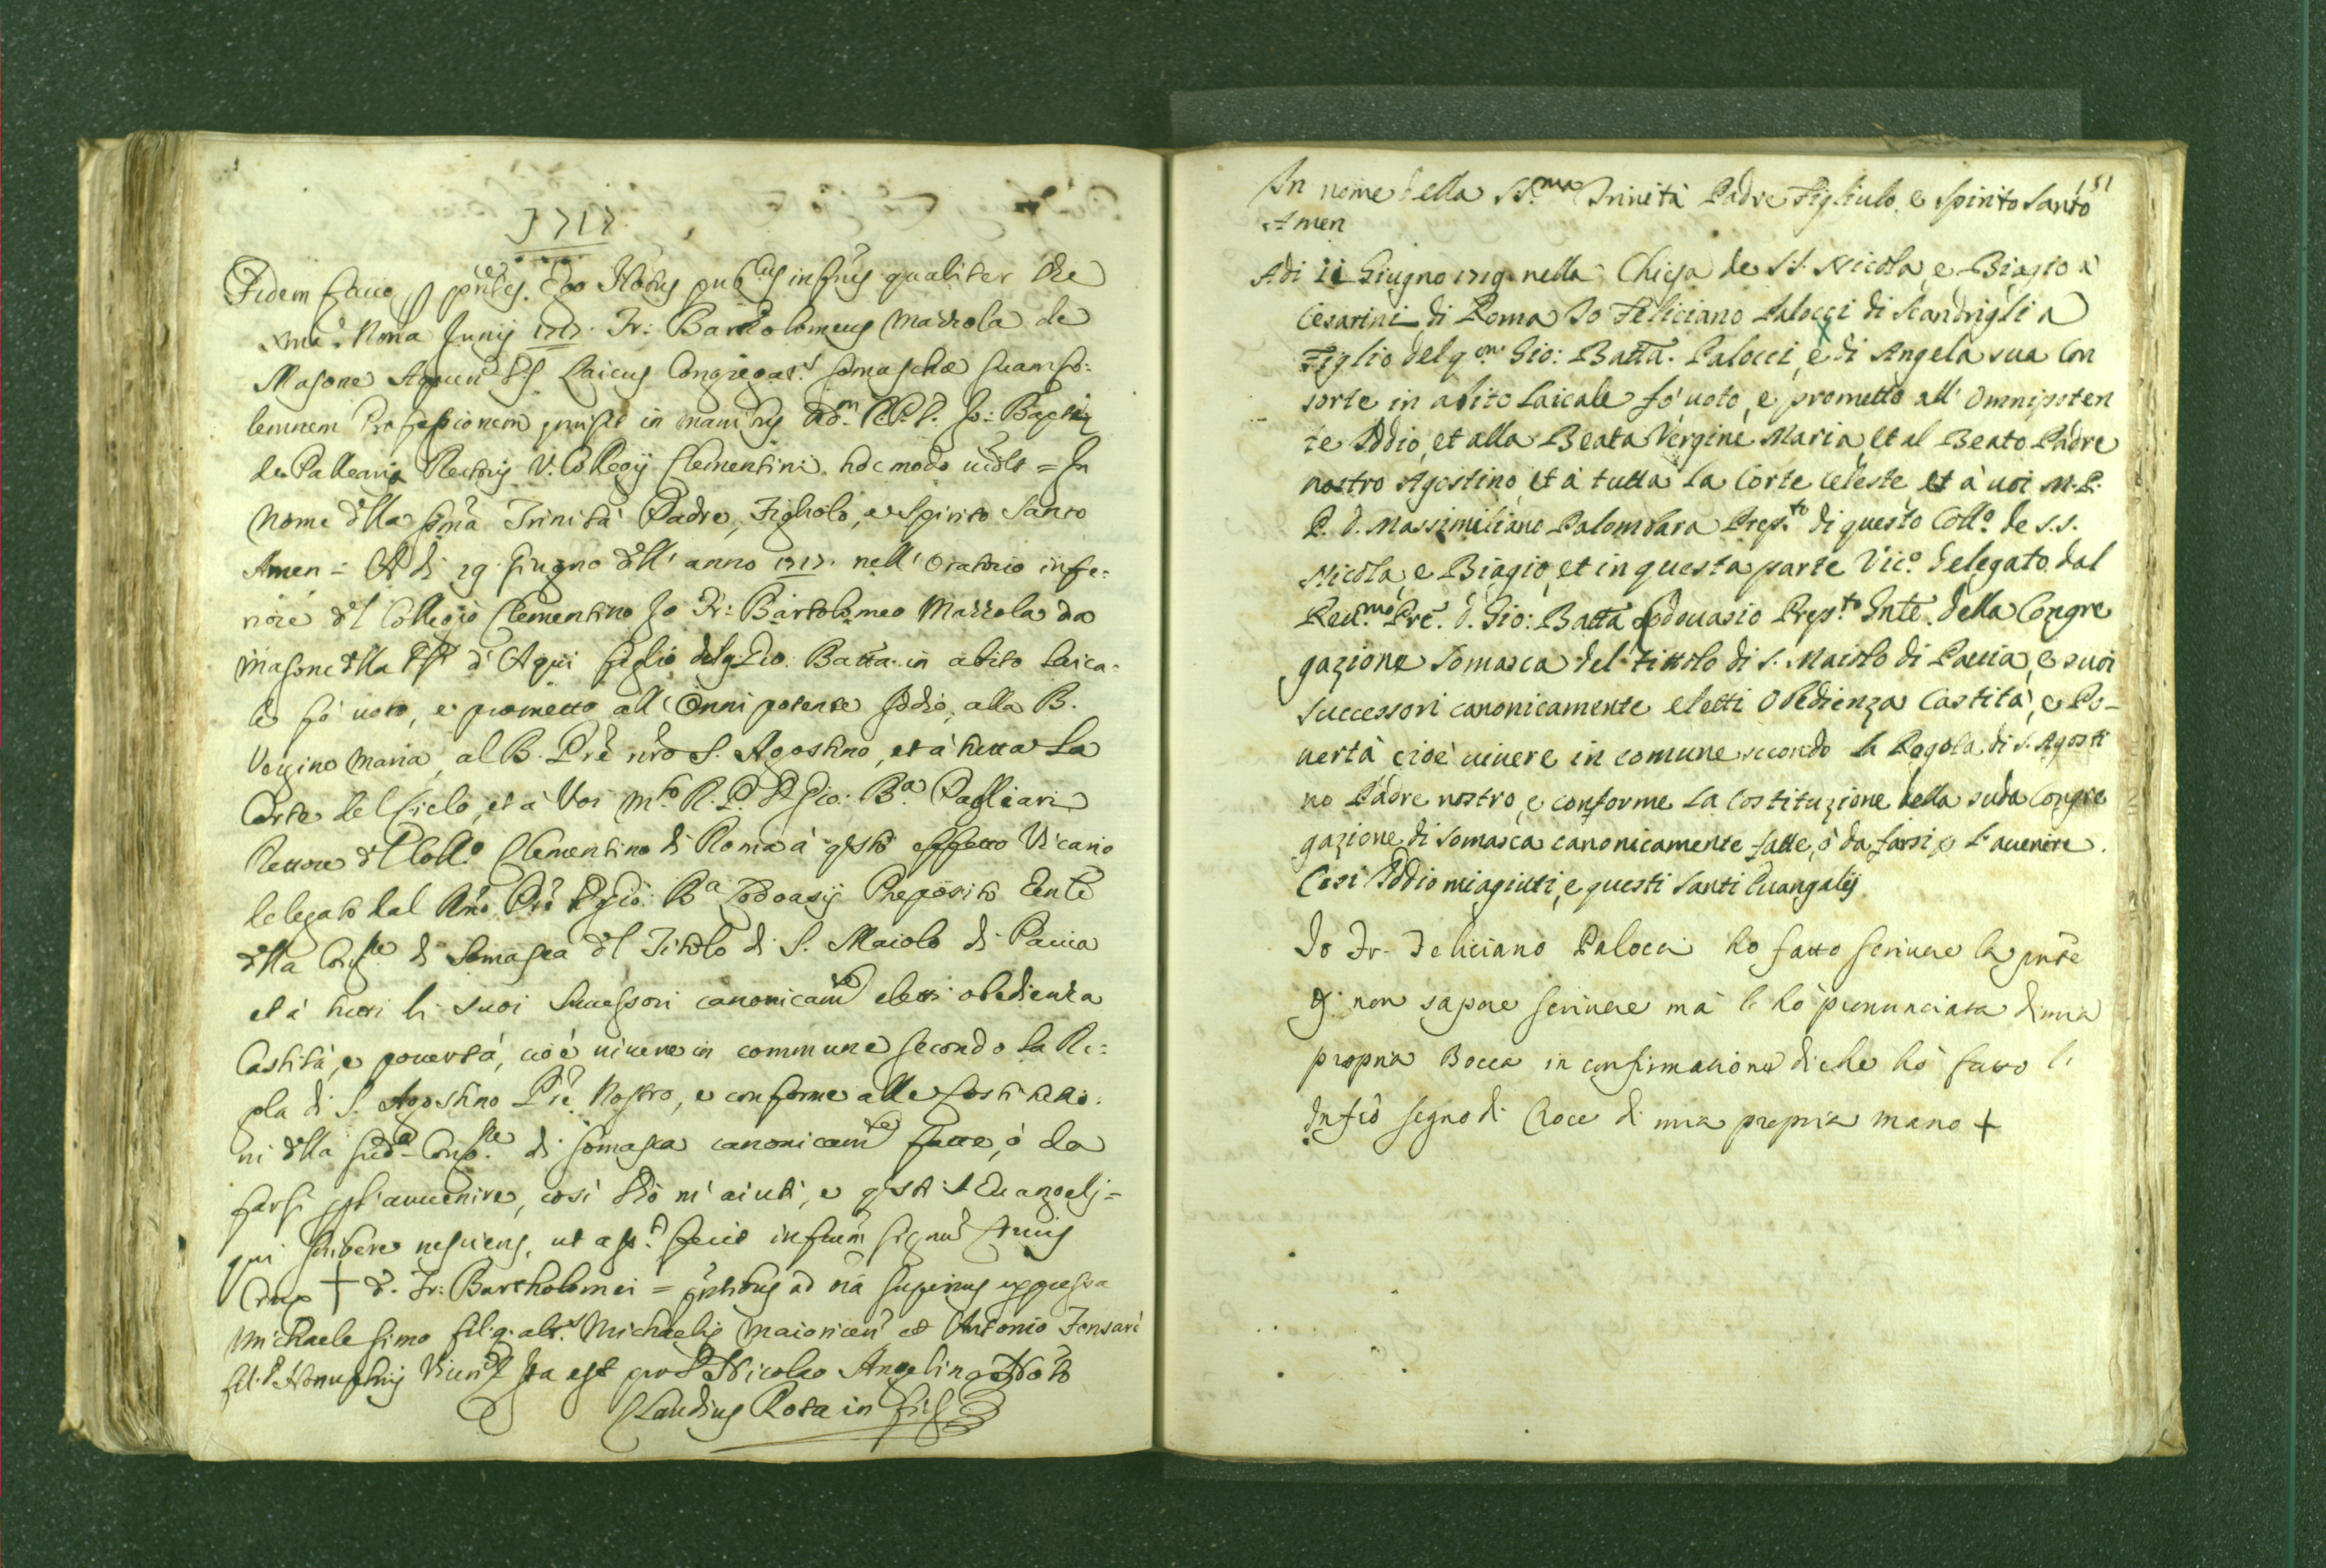 1717
Fidem facio p pntes Ego Notus pub.cus infrus qualiter Die
xma Nona Junij 1717. Fr: Bartolomeus Mazzola de
Masone Aquen Ds Laicus Congregat.s Somaschæ suam so:
lemnem Professionem emisit in manibus Ad.m R.P.D. Jo: Baptæ
de Palleariis Rectoris V. Collegij Clementini hoc modo uidlt = In
Nome dlla Sma Trinità Padre, Figliolo, e Spirito Santo
Amen = A dì 19 Giugno dll' anno 1717. nell' Oratorio infe:
riore dl Collegio Clementino Io Fr: Bartolomeo Mazzola da
Masone dlla d' Aqui figlio del q. Gio: Batta in abito laica-
le fò uoto, e prometto all' Onnipotente Iddio, alla B.
Vergine Maria, al B. Prē nrō S. Agostino, et à tutta la
Corte del Cielo, et à Voi M.to R. P. D. Gio: B.a Pagliari
Rettore dl Coll.o Clementino di Roma à qsto effetto Vicario
delegato dal Rmō Prē D. Gio: B.a Lodoasij Preposito Gente
dlla Cong.ne di Somasca dl Titolo di S. Maiolo di Pauia
et à tutti li suoi Successori canonicam.te eletti obedienza
Castità, e pouertà, cioè uiuere in commune secondo la Re:
gola di S. Agostino Prē Nostro, e conforme alle Costitutio:
ni dlla sud.a Cong.ne di Somasca canonicam.te fatte, ò da
farsi p l'auuenire, così Ddio m' aiuti, e qsti S Euangelj =
qui scribere nesciens, ut ass.t fecit infrum signum Crucis
Crux + d. Fr: Bartholomei = pntibus ad oia superius expressa
Michaele Simo fil. q. alt.s Michaelis Maioricen et Antonio Fensari
fil. Honuphrij Ita est pro D Nicolao Angelino Noto
Claudius Rota in fid
151
In nome della SS.ma Trinità Padre Figliulo, e Spirito Santo
Amen
Adi 11 Giugno 1719. nella Chiesa de SS. Nicola, e Biagio à
Cesarini di Roma Io Feliciano Palocci di Scandriglia
Figlio del q.m Gio: Batta. Palocci, e di Angela sua Con
sorte in abito Laicale fò uoto, e prometto all' Omnipoten
te Iddio, et alla Beata Vergine Maria, et al Beato Padre
nostro Agostino, et à tutta la Corte celeste, et à uoi M.R.
P. D. Massimiliano Palombara Prep.to di questo Coll.o de S.S.
Nicola, e Biagio, et in questa parte Vic.o delegato dal
Reu.mo Prē. D. Gio: Batta Lodouasio Prep.to Gnte. della Congre
gazione Somasca del tittolo di S. Maiolo di Pauia, e suoi
Successori canonicamente eletti Obedienza Castità, e Po-
uertà cioè uiuere in comune secondo la Regola di S. Agosti
no Padre nostro, e conforme la Costituzione della suda Congre
gazione di Somasca canonicamente fatte, ò da farsi p l'auenire.
Cosi Iddio mi agiuti, e questi Santi Euangalij
Io Fr. Feliciano Palocci ho fatto scriuere la pnte
p non sapere scriuere mà l' hò pronunciata di mia
propria Bocca in confirmatione di che hò fatto l'
Infrō segno di Croce di mia propria mano +